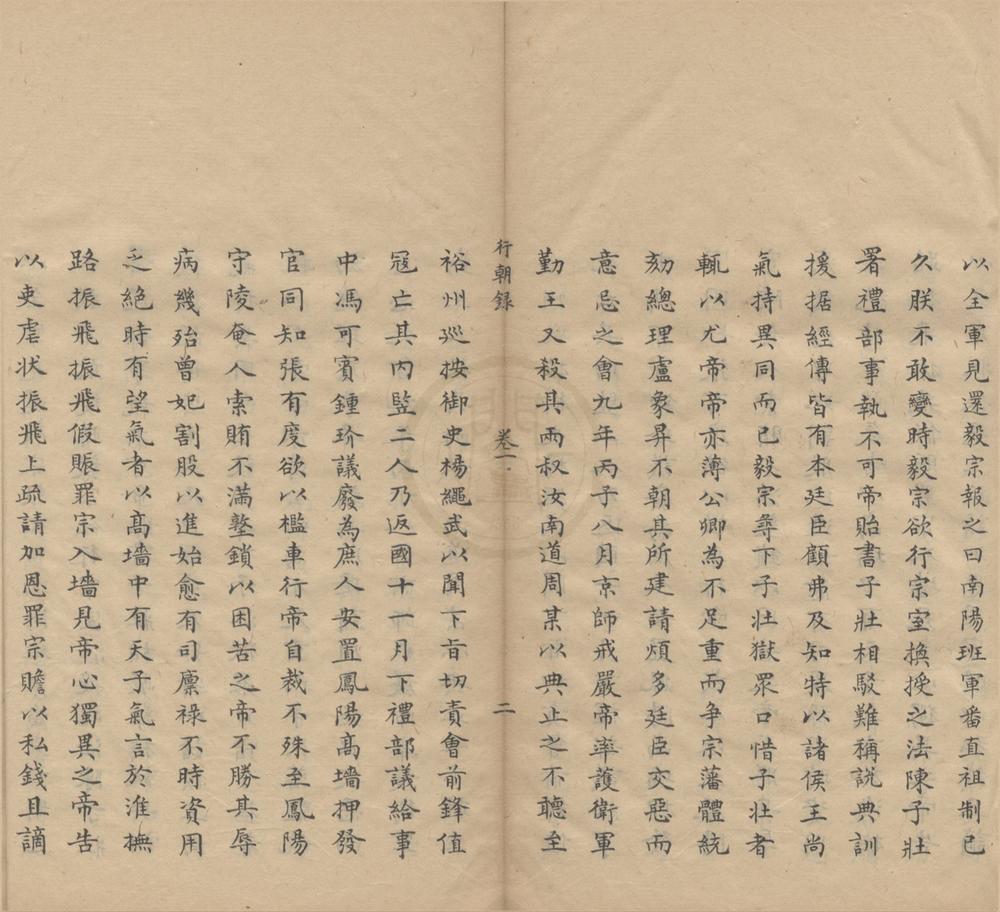 以全軍見還毅宗報之曰南陽班軍番直祖制已
久朕不敢變時毅宗欲行宗室換授之法陳子壯
署禮部事執不可帝貽書子壯相駁難稱說典訓
援据經傳皆有本廷臣顧弗及知特以諸侯王尚
氣持異同而已毅宗尋下子壯獄眾口惜子壯者
輒以尤帝帝亦薄公卿為不足重而争宗藩體統
劾總理盧象昇不朝其所建請煩多廷臣交惡而
意忌之會九年丙子八月京師戒嚴帝率護衛軍
勤王又殺其兩叔汝南道周某以典止之不聽至
行朝録 卷一 二
裕州巡按御史楊繩武以聞下旨切責會前鋒值
寇亡其内監二人乃返國十一月下禮部議給事
中馮可賓鍾玠議廢為庶人安置鳳陽高墻押發
官同知張有度欲以檻車行帝自裁不殊至鳳陽
守陵奄人索賄不滿墼鎖以困苦之帝不勝其辱
病幾殆曾妃割股以進始愈有司廩祿不時資用
乏絕時有望氣者以高墻中有天子氣言於淮撫
路振飛振飛假賑罪宗入墻見帝心獨異之帝告
以吏虐狀振飛上疏請加恩罪宗贍以私錢且謫